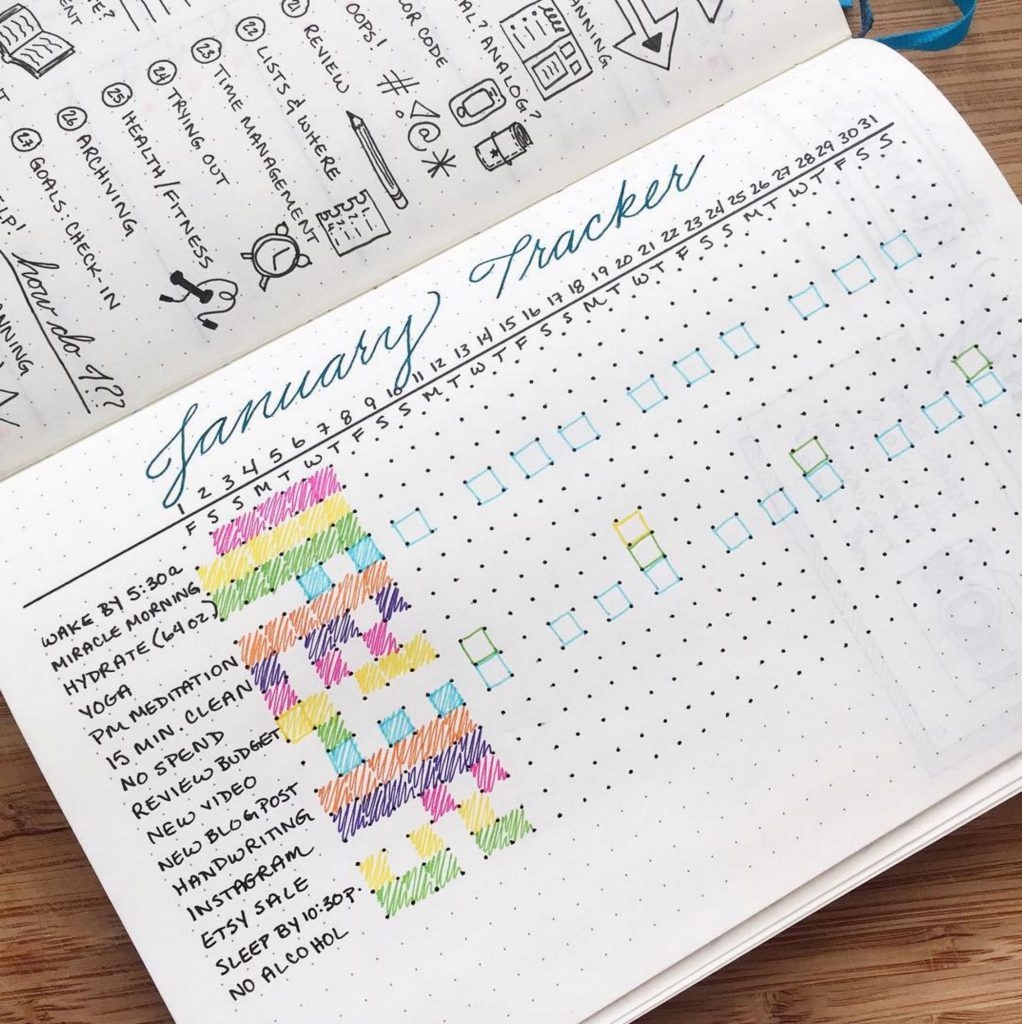 27 GOALS: CHECK-IN
26 ARCHIVING
25 HEALTH/FITNESS
24 TRYING OUT
23 TIME MANAGEMENT
22 LISTS & WHERE
21 REVIEW
OOPS!
OR CODE
AL? ANALOG?
ANNING
# ! @ *
how do I??
January Tracker
1 2 3 4 5 6 7 8 9 10 11 12 13 14 15 16 17 18 19 20 21 22 23 24 25 26 27 28 29 30 31
F S S M T W T F S S M T W T F S S M T W T F S S M T W T F S S
WAKE BY 5:30a
MIRACLE MORNING
HYDRATE (64 oz)
YOGA
PM MEDITATION
15 MIN. CLEAN
NO SPEND
REVIEW BUDGET
NEW VIDEO
NEW BLOG POST
HANDWRITING
INSTAGRAM
ETSY SALE
SLEEP BY 10:30p.
NO ALCOHOL